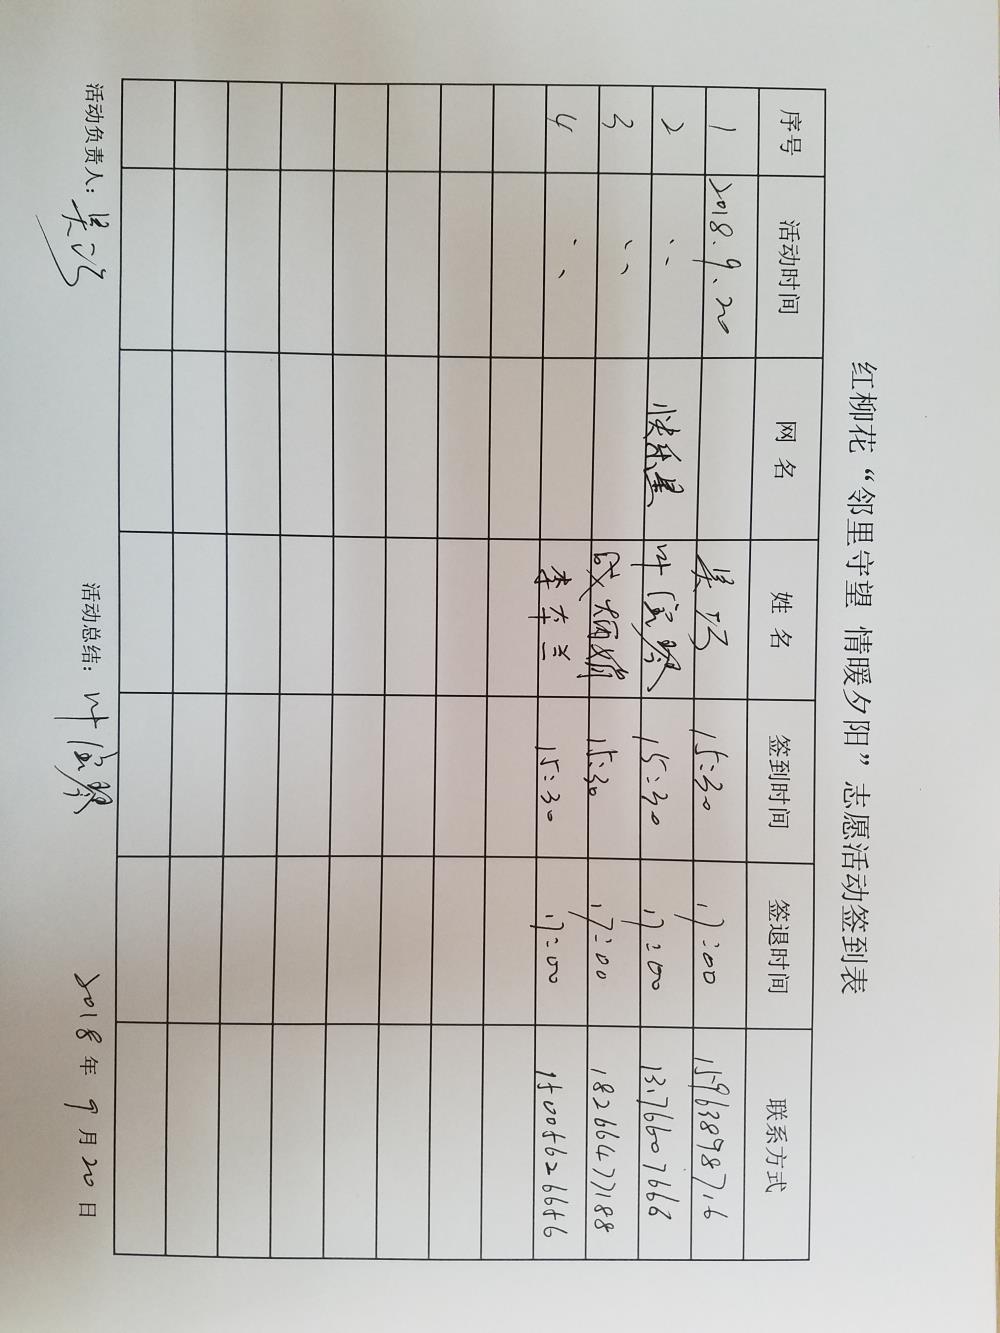 红柳花“邻里守望 情暖夕阳”志愿活动签到表
序号 活动时间 网 名 姓 名 签到时间 签退时间 联系方式
1 2018.9.20 15:30 17:00
2 〃 快乐星 叶宝琴 15:30 17:00 13766607668
3 〃 15:30 17:00 18266477188
4 〃 李本兰 15:30 17:00 15005626656
活动负责人: 活动总结: 叶宝琴 2018年9月20日